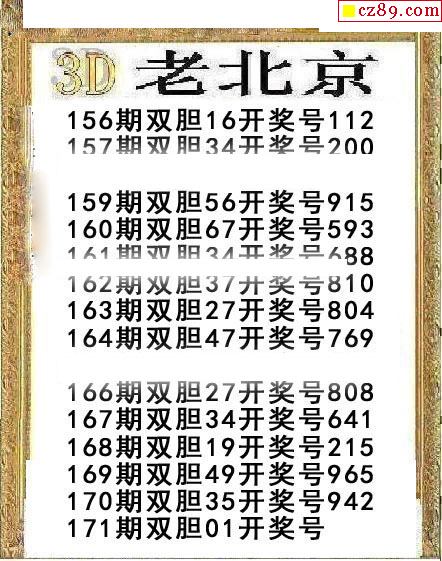 cz89.com
3D 老北京
156期双胆16开奖号112
157期双胆34开奖号200
159期双胆56开奖号915
160期双胆67开奖号593
161期双胆34开奖号688
162期双胆37开奖号810
163期双胆27开奖号804
164期双胆47开奖号769
166期双胆27开奖号808
167期双胆34开奖号641
168期双胆19开奖号215
169期双胆49开奖号965
170期双胆35开奖号942
171期双胆01开奖号